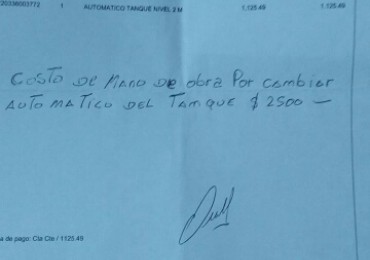 20336003772 1 AUTOMATICO TANQUE NIVEL 2 M 1,125.49 1,125.49
COSTO DE MANO DE obra Por cambiar
AUTOMATICO DEL TANQUE $ 2500 —
a de pago: Cta Cte / 1125.49